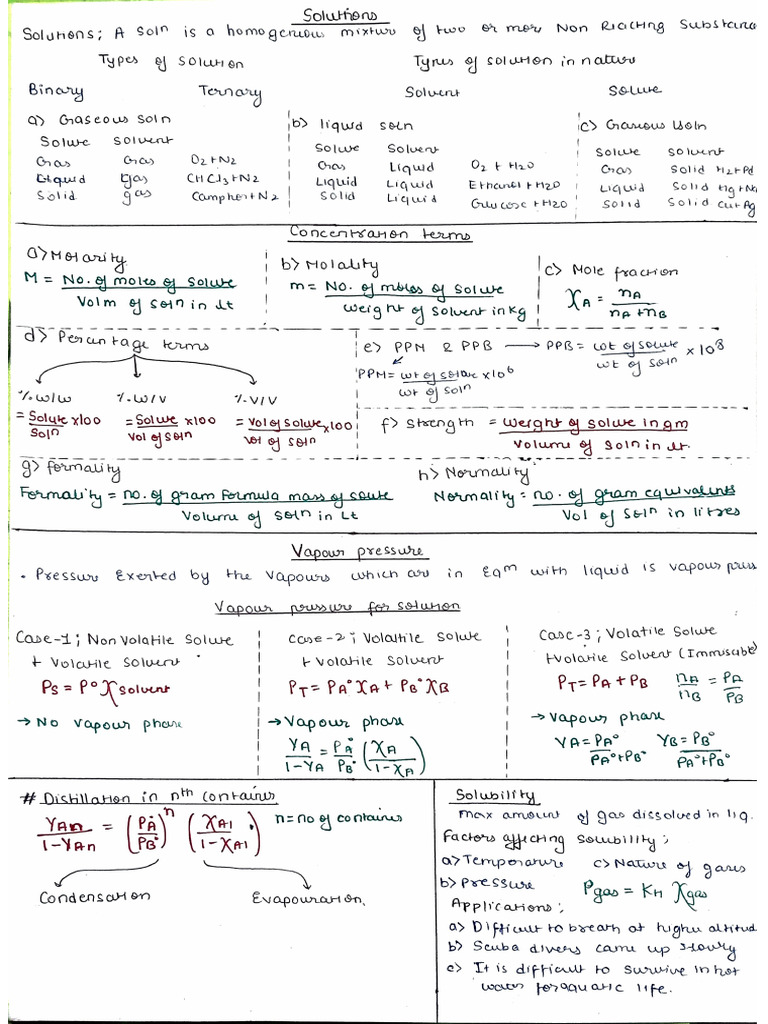 Solutions
Solutions; A Solⁿ is a homogenious mixture of two or more Non Reacting Substance
Types of solution
Types of solution in nature
Binary
Ternary
Solvent
Solute
a) Gaseous Soln
Solute Solvent
Gas Gas O2+N2
Liquid gas CHCl3+N2
Solid gas Camphor+N2
b) liquid soln
Solute Solvent
Gas Liquid O2 + H2O
Liquid Liquid Ethanol+H2O
Solid Liquid Glucose+H2O
c) Gaseous
Solute Solvent
Gas Solid H2+Pd
Liquid Solid Hg+Na
Solid Solid Cu+Ag
Concentration terms
a) Molarity
M = No. of moles of Solute / Volm of Solⁿ in lt
b) Molality
m = No. of moles of Solute / Weight of solvent in kg
c) Mole fraction
χA = nA / nA + nB
d) Percantage terms
%.w/w %.w/V %.V/V
= Solute / Solⁿ x100
= Solute / Vol of Solⁿ x100
= Vol of solute / Vol of Solⁿ x100
e) PPM & PPB → PPB = wt of solute / wt of solⁿ × 10⁸
PPM = wt of solute / wt of solⁿ x10⁶
f) Strength = Weight of Solute in gm / Volume of Solⁿ in lt.
g) formality
Formality = no. of gram formula mass of soute / Volume of Solⁿ in Lt
h) Normality
Normality = no. of gram equivalents / Vol of Solⁿ in litres
Vapour pressure
. Pressure Exerted by the Vapours which are in Eqᵐ with liquid is vapour pressu
Vapour pressure for solution
Case-1; Non Volatile Solute
+ Volatile Solvent
Ps = P° χ solvent
→ No vapour phase
Case-2; Volatile Solute
+ Volatile Solvent
PT = PA° χA + PB° χB
→ Vapour phase
YA / 1-YA = PA° / PB° (χA / 1-χA)
Case-3; Volatile Solute
+Volatile Solvent (Immiscable)
PT = PA + PB nA / nB = PA / PB
→ Vapour phase
YA = PA° / PA°+PB° YB = PB° / PA°+PB°
# Distillation in nth container
YAn / 1-YAn = (PA° / PB°)ⁿ (χA1 / 1-χA1) n=no of container
Condensation
Evapouration,
Solubility
max amount of gas dissolved in liq.
Factors affecting Solubility;
a) Temperature c) Nature of gases
b) Pressure Pgas = KH χgas
Applications;
a) Difficult to breath at higher altitud
b) Scuba divers came up slowly
c) It is difficult to Survive in hot
water for aquatic life.